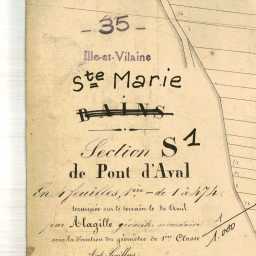 - 35 -
Ille-et-Vilaine
Ste Marie
BAINS
Section S1
de Pont d'Aval
En feuilles, 1re - de 1 à 474
terminée sur le terrain le Avril
par Alagille géomètre
sous la direction du géomètre de 1ère Classe
1.000